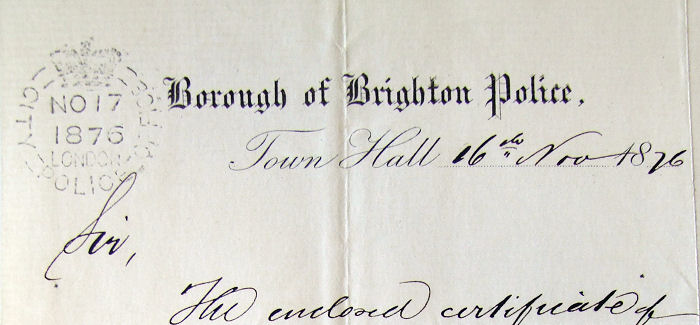 CITY POLICE OFFICE
NO 17
1876
LONDON
POLICE
Borough of Brighton Police,
Town Hall 16th Nov 1876
Sir,
The enclosed certificate of